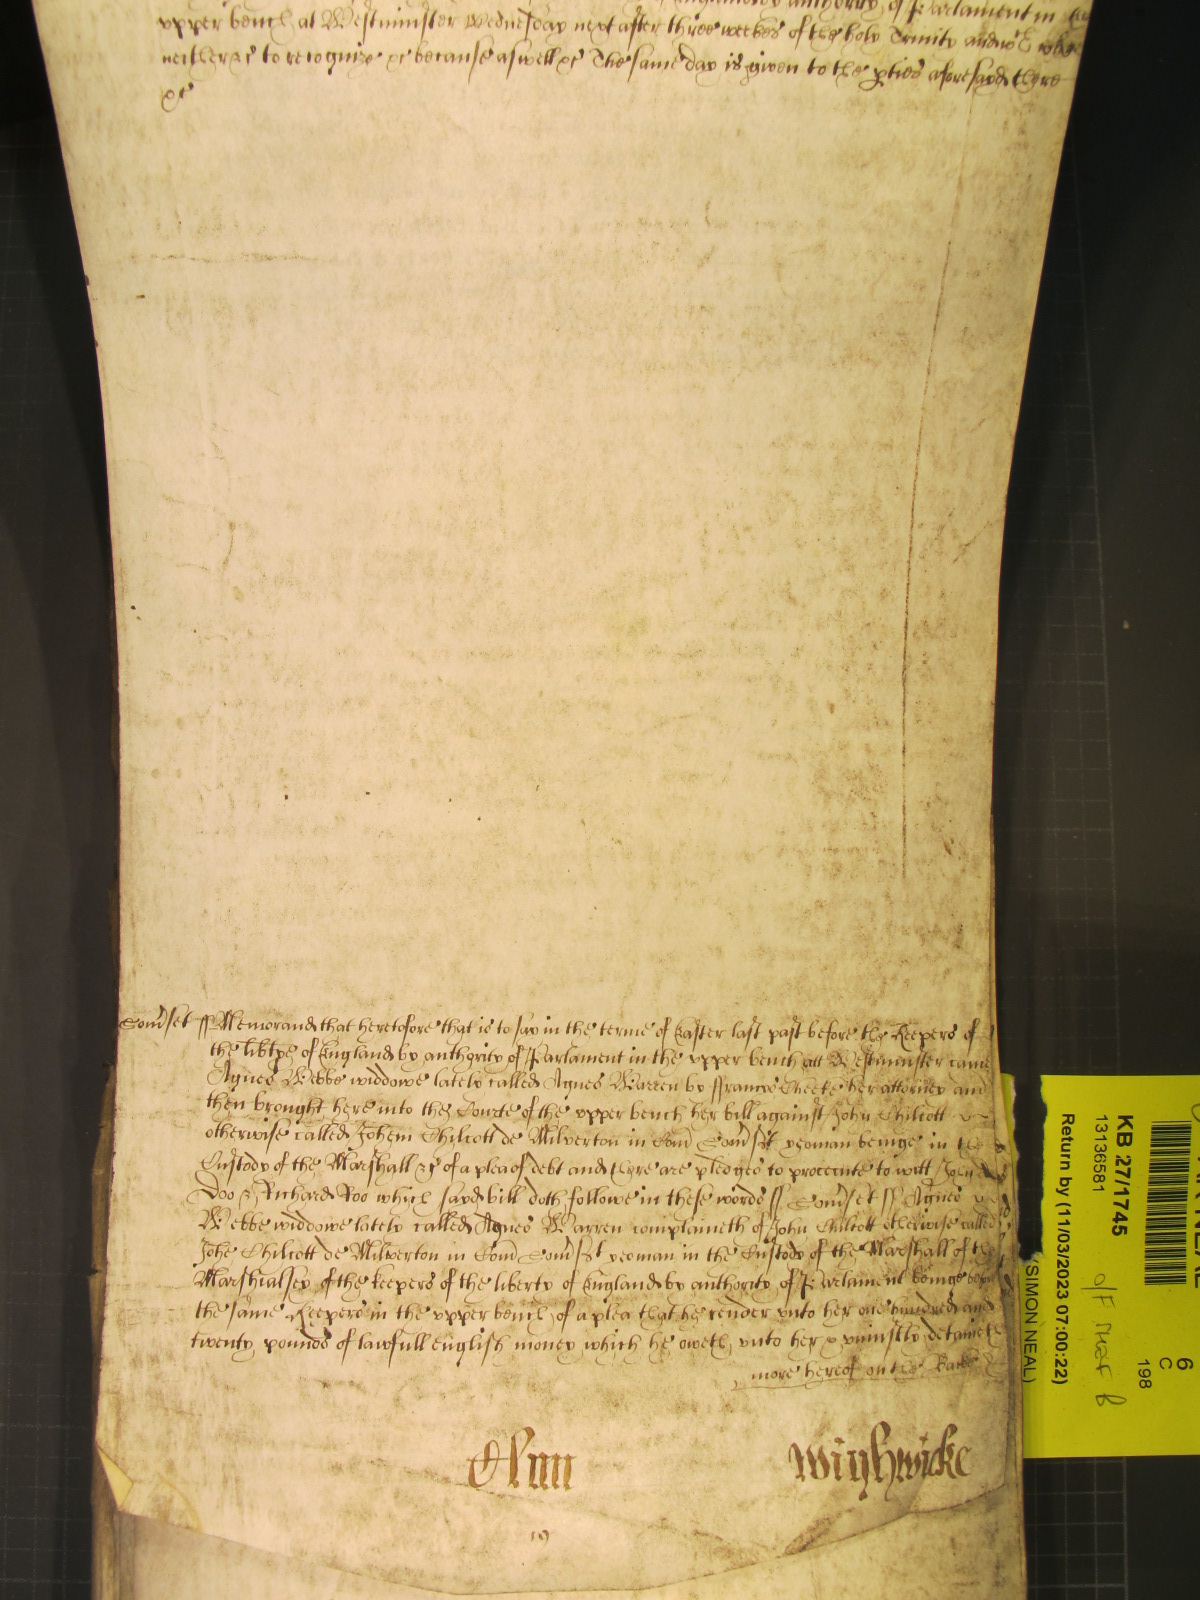 authority of Parlament in
upper bench at Westminster Wednesday next after three weekes of the holy Trinity and
neither &c to recognize &c because aswell &c The same day is given to the pties aforesayd there
&c
Somset ss Memorand that heretofore that is to say in the terme of Easter last past before the Keepers of
the libtye of England by authority of Parlament in the upper bench att Westminster came
Agnes Webbe widdowe lately called Agnes Warren by ffrancis Cheeke her attorney and
then brought here into the Courte of the upper bench her bill against John Chilcott
otherwise called Johem Chilcott de Milverton in Com Somset yeoman beinge in the
Custody of the Marshall &c of a plea of debt and there are pledges to prosecute to witt John
Doo & Richard Roo which sayd bill doth followe in these words ss Somset ss Agnes
Webbe widdowe lately called Agnes Warren complaineth of John Chilcott otherwise called
Johe Chilcott de Milverton in Com Somset yeoman in the Custody of the Marshall of the
Marshialsey of the keepers of the liberty of England by authority of Parlament beinge before
the same Keepers in the upper bench of a plea that he render unto her one hundred and
twenty pounds of lawfull English money which he oweth unto her & uniustly detaineth
more hereof on the Backe
Wighwicke
19
KB 27/1745
13136581
Return by (11/03/2023 07:00:22)
(SIMON NEAL)
6
C
198